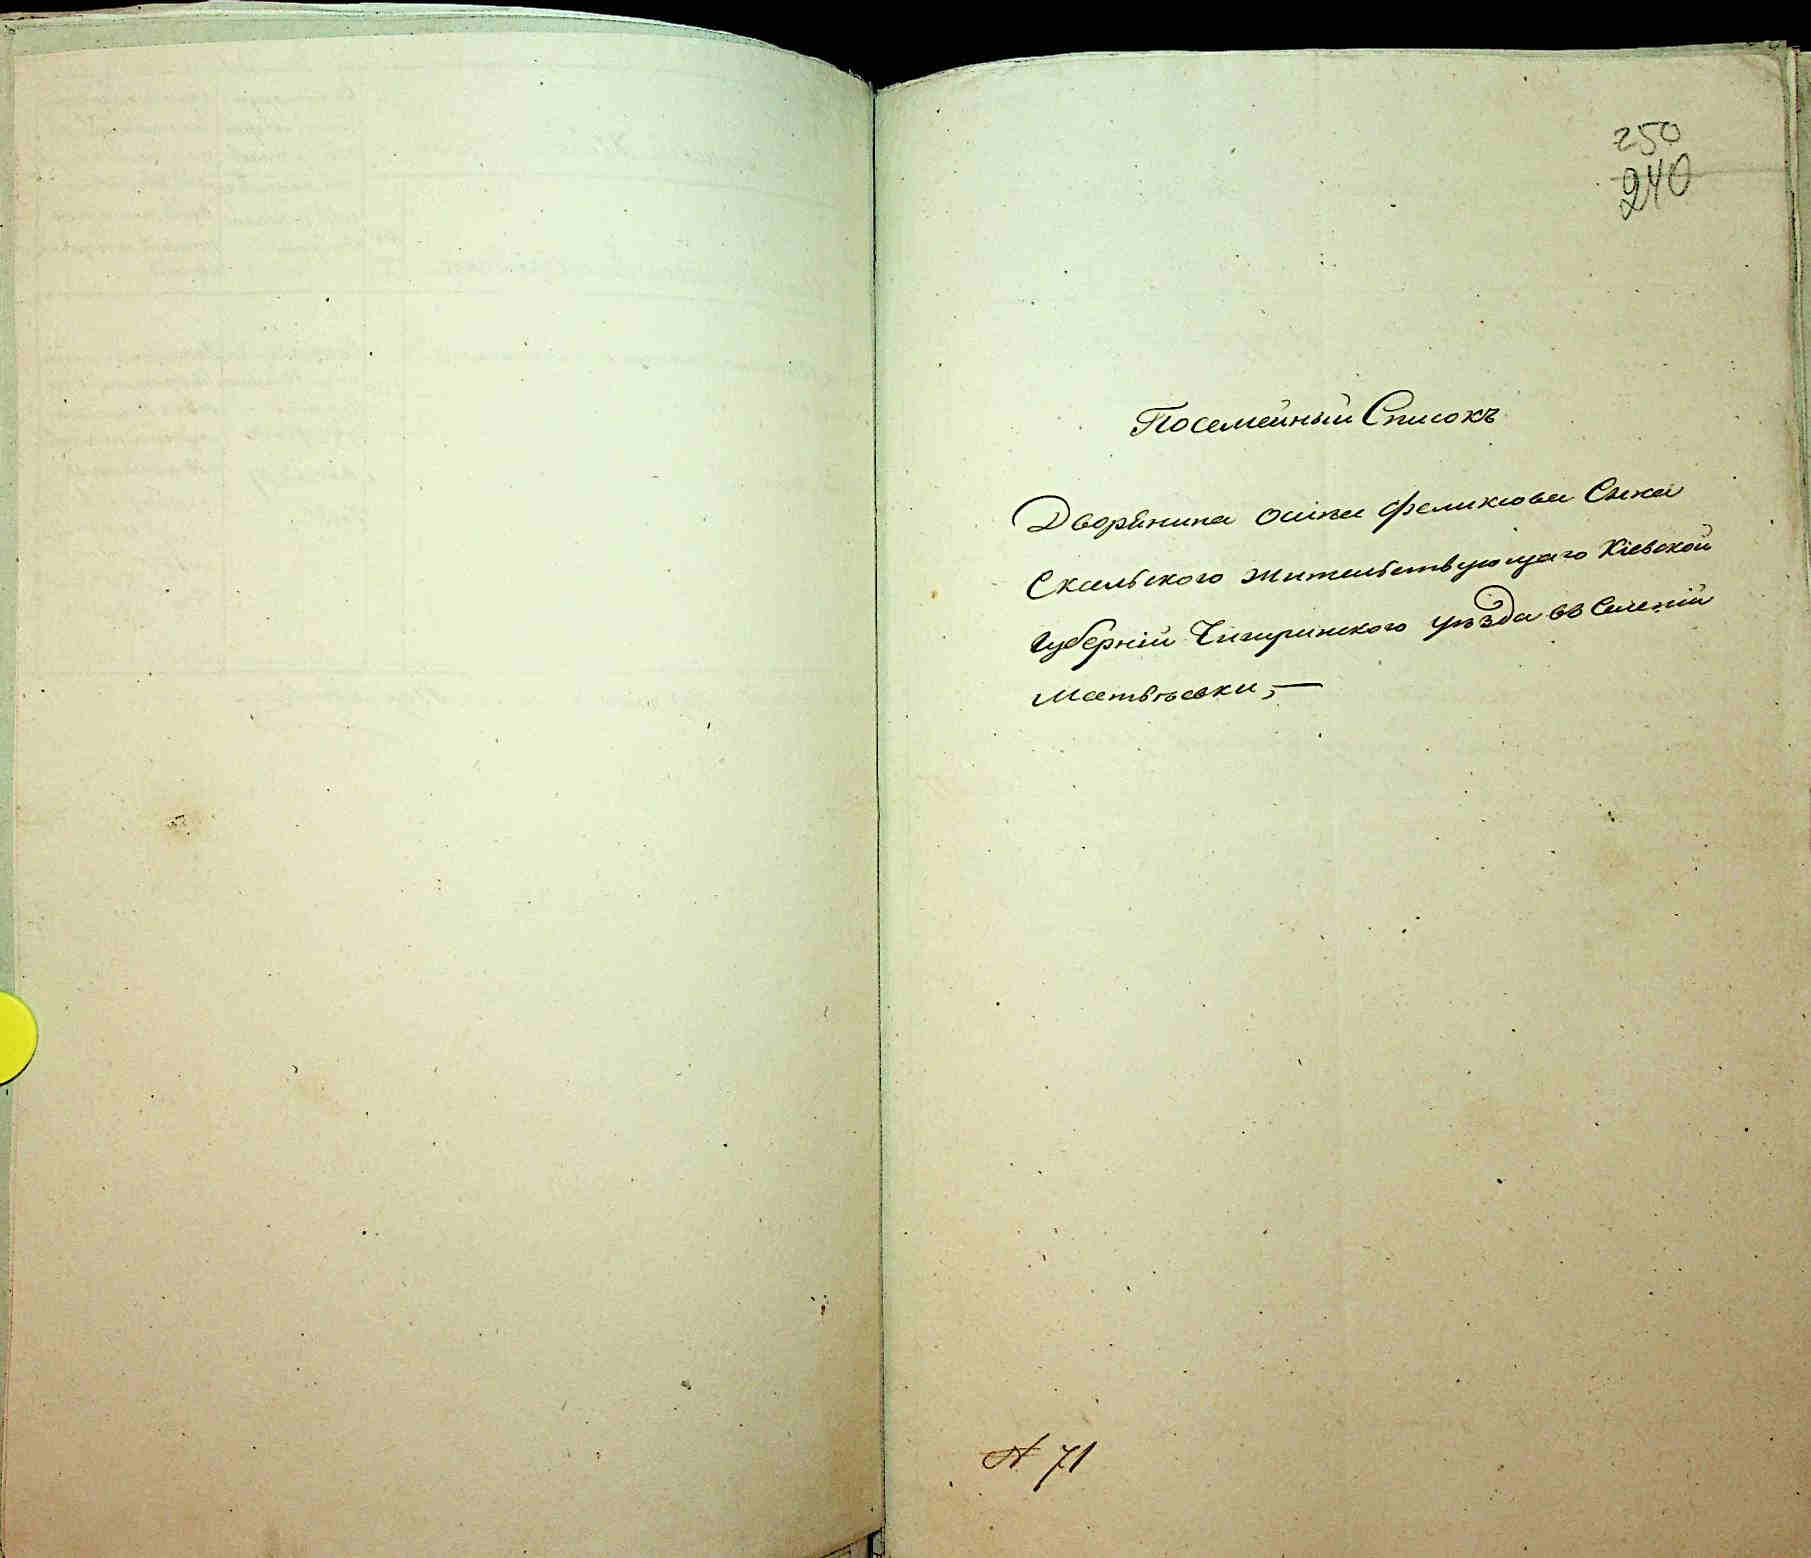 250
240
Посемейный Списокъ
Дворянина Осипа Феликсова Сына
Скальского жительствующаго Кіевской
Губерніи Чигиринского уѣзда въ Селеніи
Матвѣевки,—
№ 71